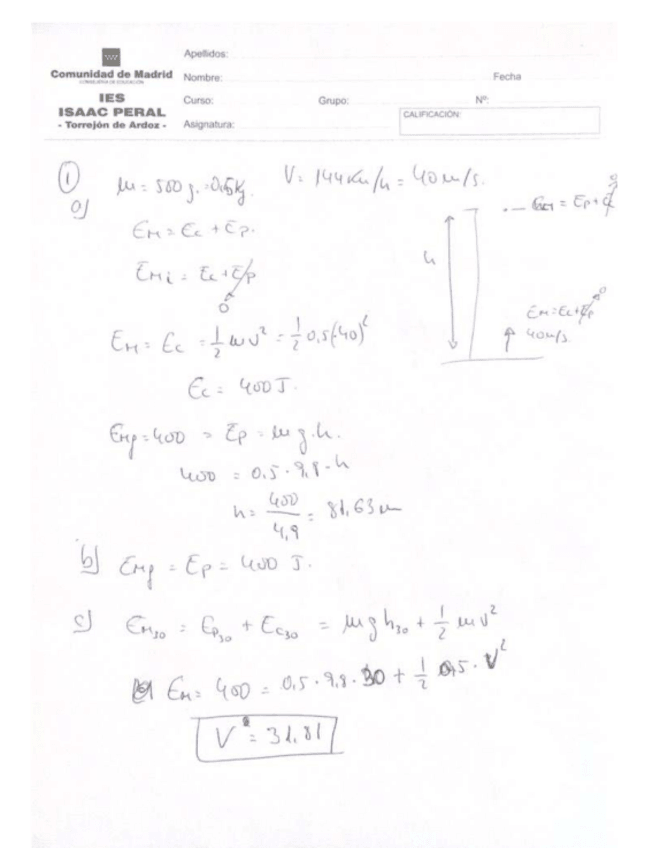 Comunidad de Madrid
CONSEJERIA DE EDUCACIÓN
IES
ISAAC PERAL
- Torrejón de Ardoz -
Apellidos:
Nombre: Fecha
Curso: Grupo: Nº:
Asignatura: CALIFICACIÓN:
① m = 500 g. = 0.5 Kg. V = 144 Km/h = 40 m/s.
a) EM = Ec + Ep.
EMi = Ec + Ep 0
EM = Ec = 1/2 mv² = 1/2 0,5(40)²
Ec = 400 J.
EMf = 400 = Ep = m g.h.
400 = 0.5 · 9,8 · h
h = 400/4,9 = 81,63 m
h
= Ep + Ec 0
EM = Ec + Ep 0
40 m/s
b) EMf = Ep = 400 J.
c) EM30 = Ep30 + Ec30 = m g h30 + 1/2 m v²
EM = 400 = 0,5 · 9,8 · 30 + 1/2 0,5 · V²
V = 31.81